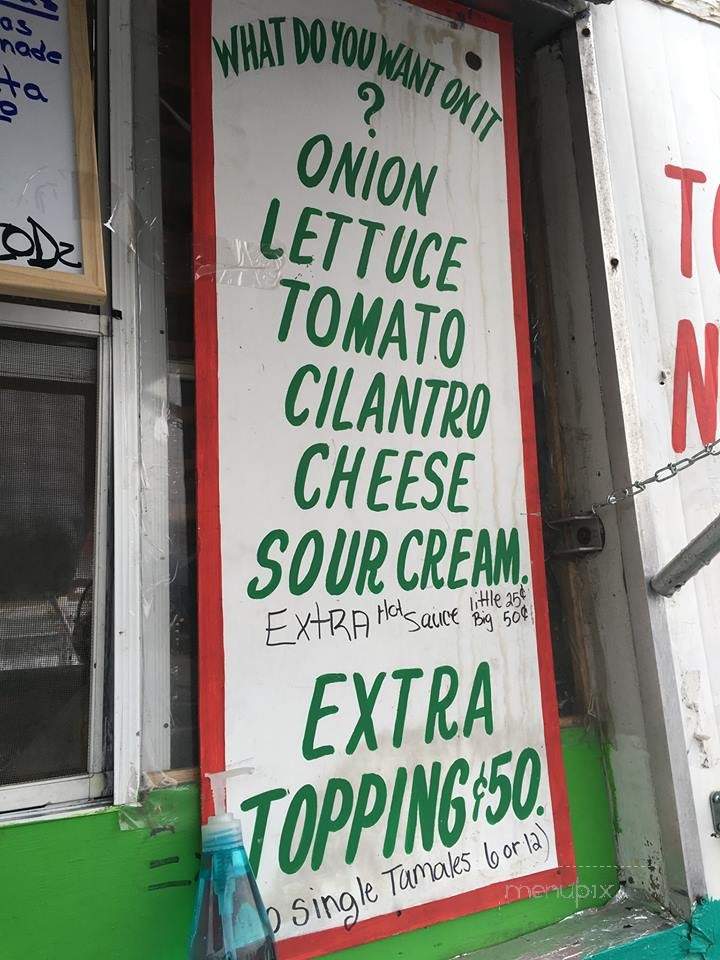 as
made
WHAT DO YOU WANT ON IT
?
ONION
LETTUCE
TOMATO
CILANTRO
CHEESE
SOUR CREAM.
EXTRA Hot Sauce little 25¢
Big 50¢
EXTRA
TOPPING ¢50.
single Tamales 6 or 12)
menupix